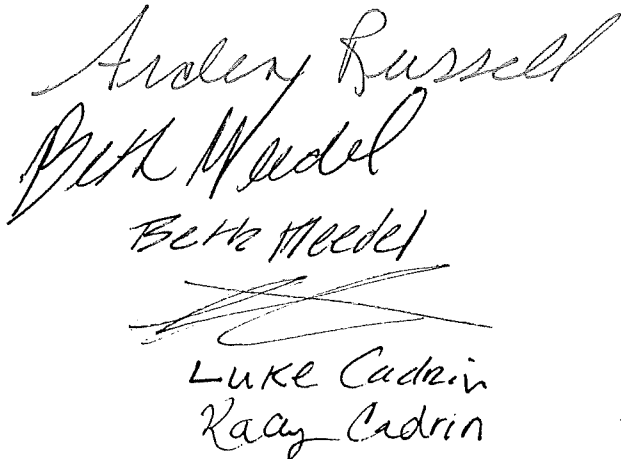 Arden Russell
Beth Meedel
Beth Meedel
Luke Cadrin
Kacy Cadrin